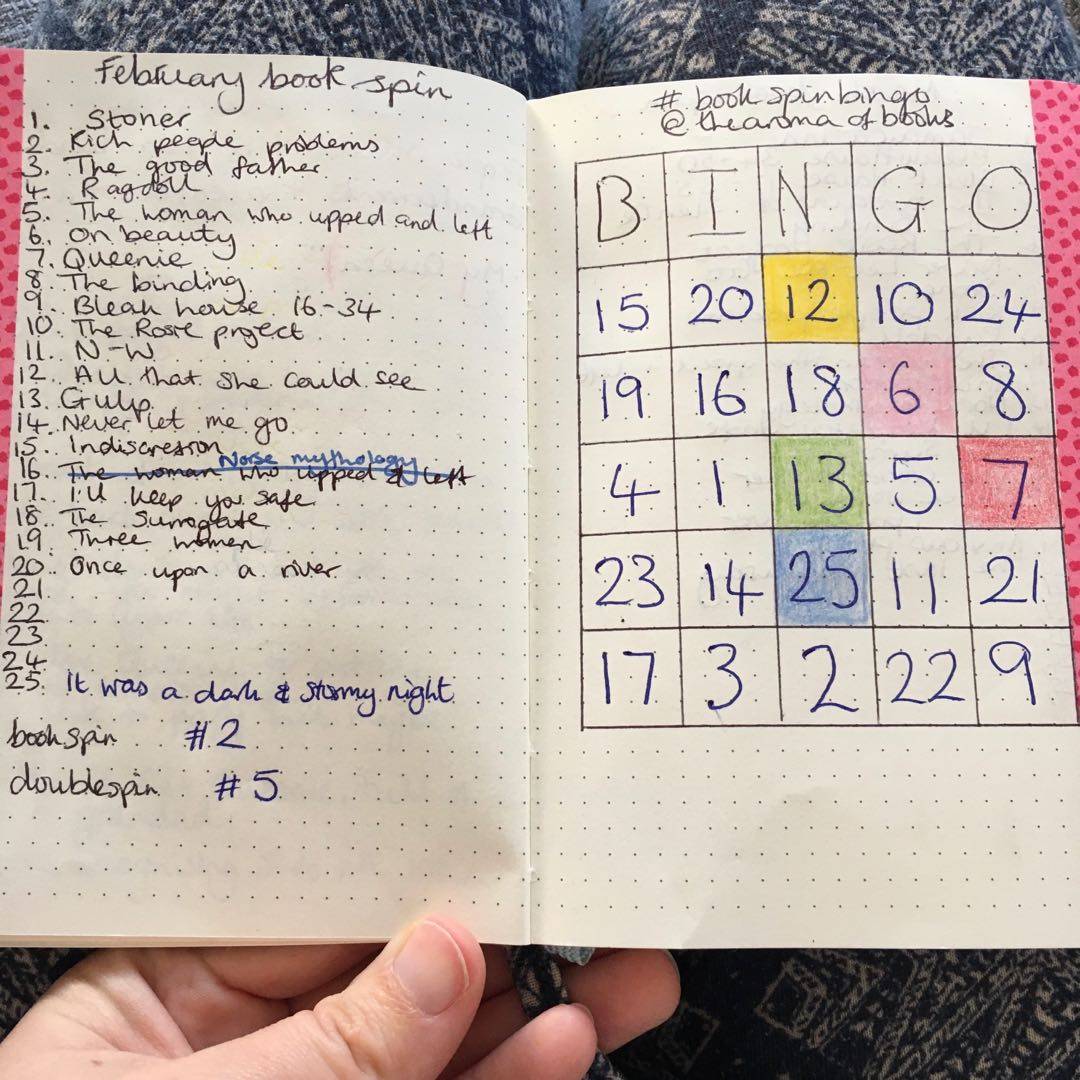 February book spin
1. Stoner
2. Rich people problems
3. The good father
4. Ragdoll
5. The woman who upped and left
6. On beauty
7. Queenie
8. The binding
9. Bleak house 16-34
10. The Rosie project
11. N-W
12. All that she could see
13. Gulp
14. Never let me go
15. Indiscresion
Norse mythology
16. The woman who upped & left
17. I'll keep you safe
18. The surrogate
19. Three women
20. Once upon a river
21
22
23
24
25. It was a dark & stormy night
bookspin #2
doublespin #5
# bookspinbingo
@ thearoma of books
B I N G O
15 20 12 10 24
19 16 18 6 8
4 1 13 5 7
23 14 25 11 21
17 3 2 22 9